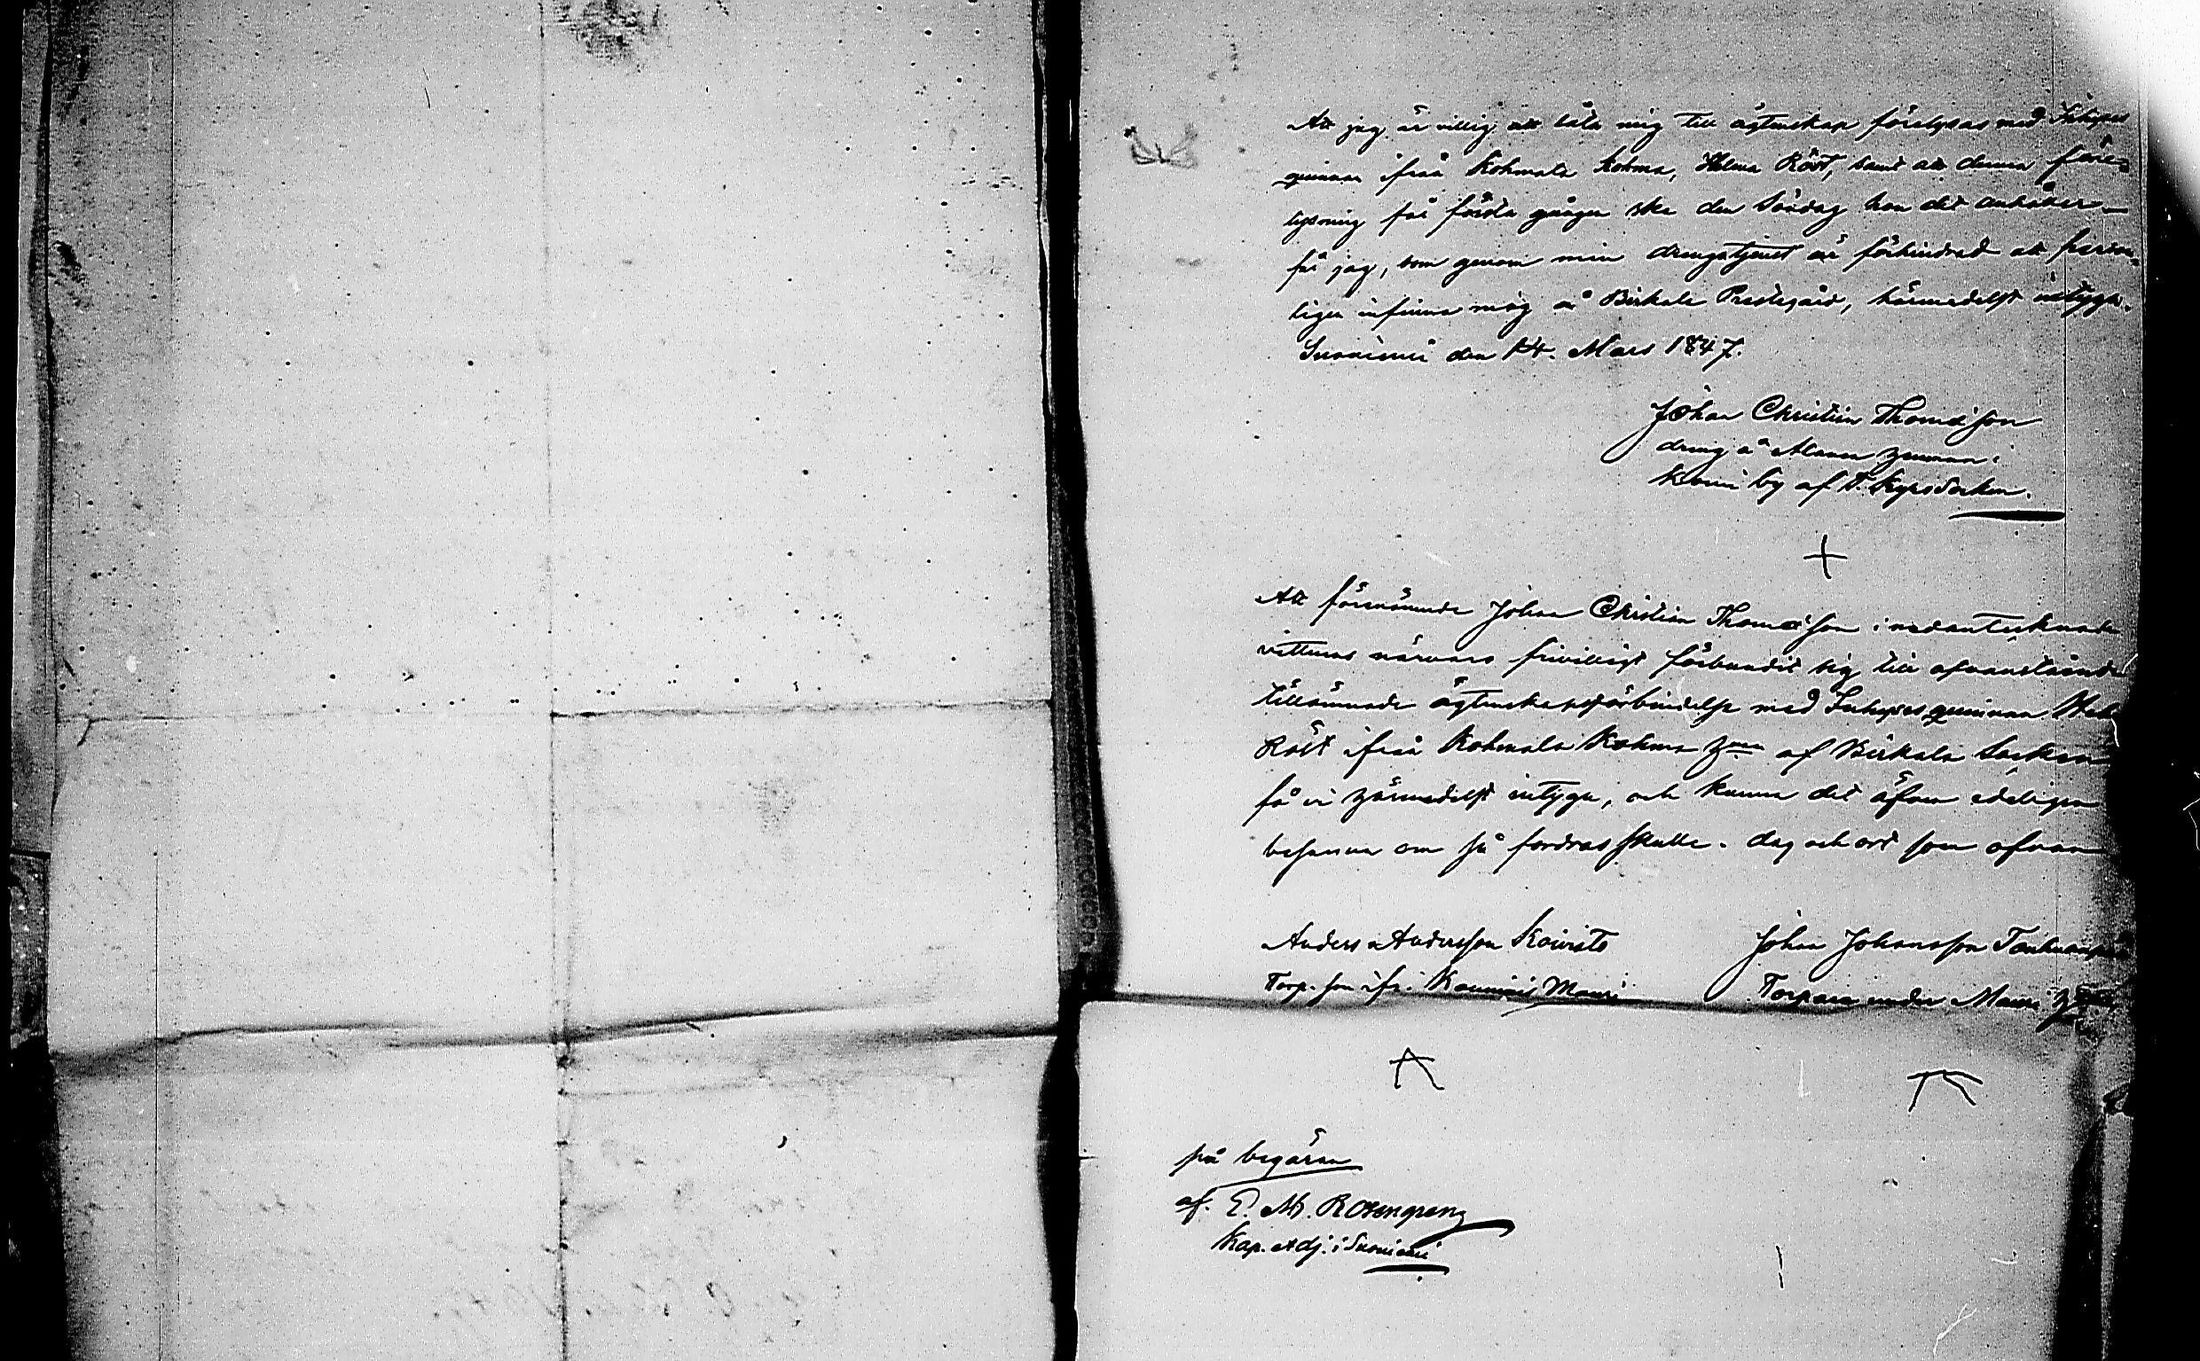 Att jag är villig att låta mig till ägtenskap förelysas med Inhyses
qvinnan ifrån Kohmala Kohma, Helena Röst, samt att denna före-
lysning får första gången ske den Söndag hon det anhåller –
får jag, som genom min drengstjenst är förhindrad att person-
ligen infinna mig å Birkala Prestegård, härmedelst intyga.
Suoniemi den 14. Mars 1847.
Johan Christian Thomasson
dreng å Mauri
by af T. Kyro Socken.
Att förenämnde Johan Christian Thomasson i nedantecknade
vittnens närvaro frivilligt förbundit sig till ofvanstående
tillämnade ägtenskapsförbindelse med Inhyses qvinnan
Röst ifrån Kohmala Kohma af Birkala Socken
få vi härmedelst intyga, och kunna det äfven edeligen
besanna om så fordras skulle. dag och ort som ofvan
Anders Andersson Koivisto Johan Johansson
Torp. son ifr. Kauniais Mauri Torpare under Mauri
på begäran
af. E. M. Rosengren
Kap. Adj. i Suoniemi